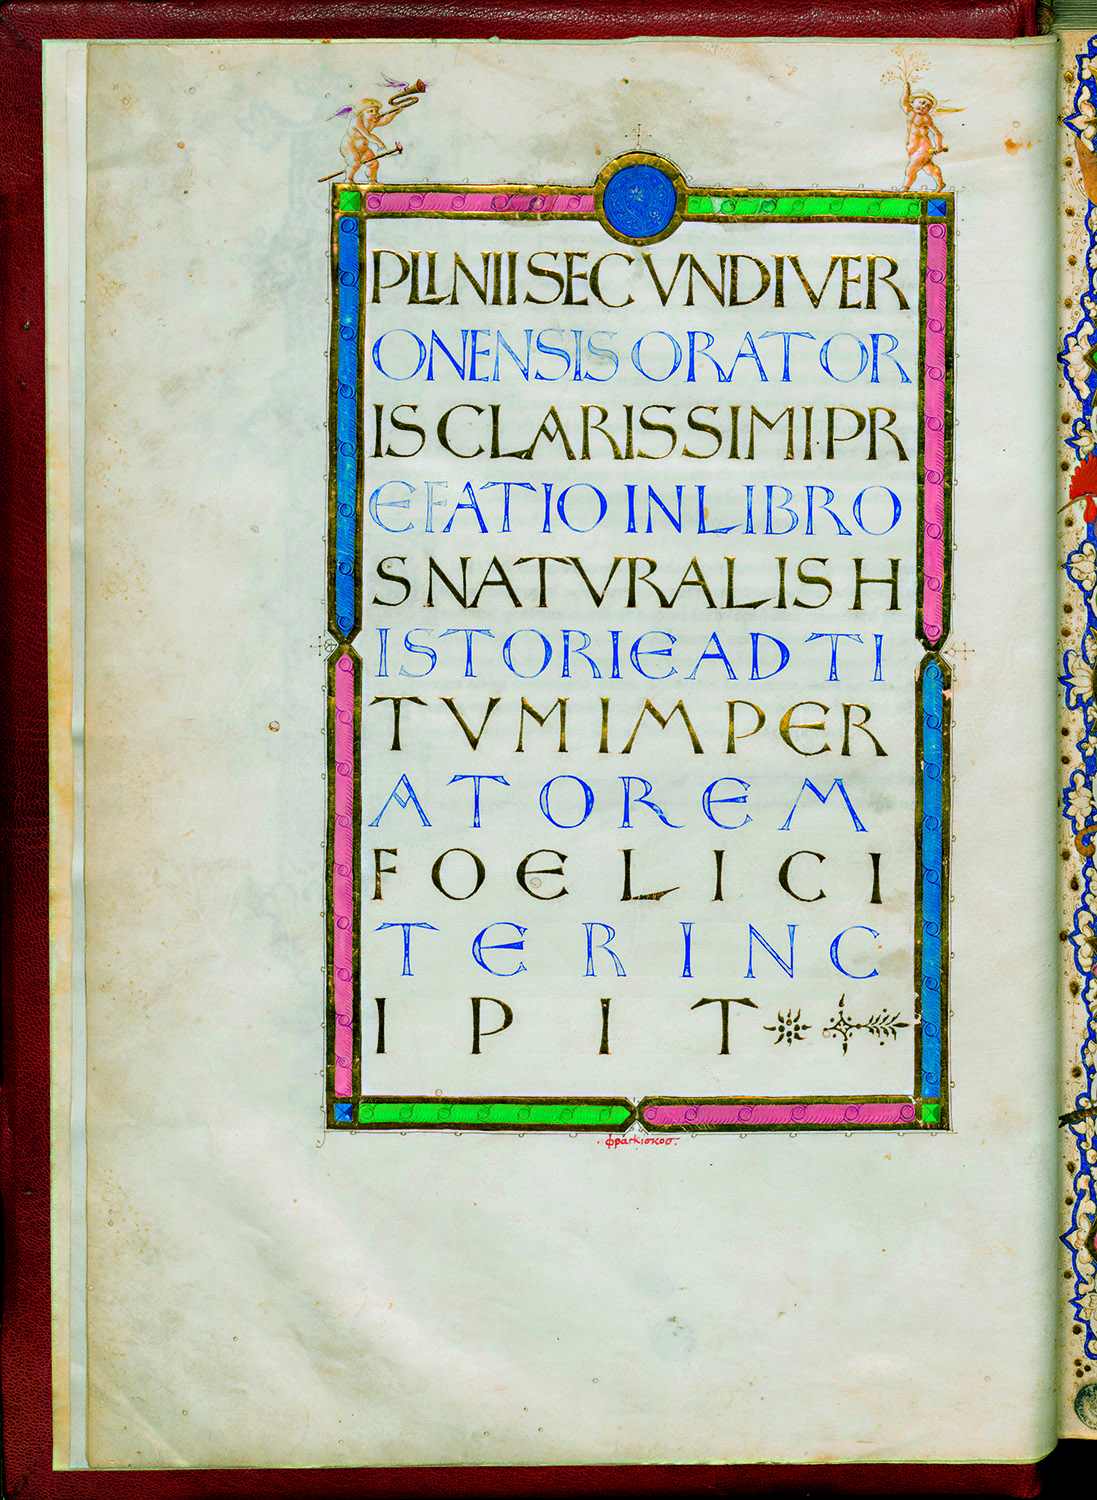 PLINII SECVNDI VER
ONENSIS ORATOR
IS CLARISSIMI·PR
EFATIO IN LIBRO
S NATVRALIS H
ISTORIE AD TI
TVM IMPER
ATOREM
FOELICI
TER INC
IPIT
·φραγκισκοσ·